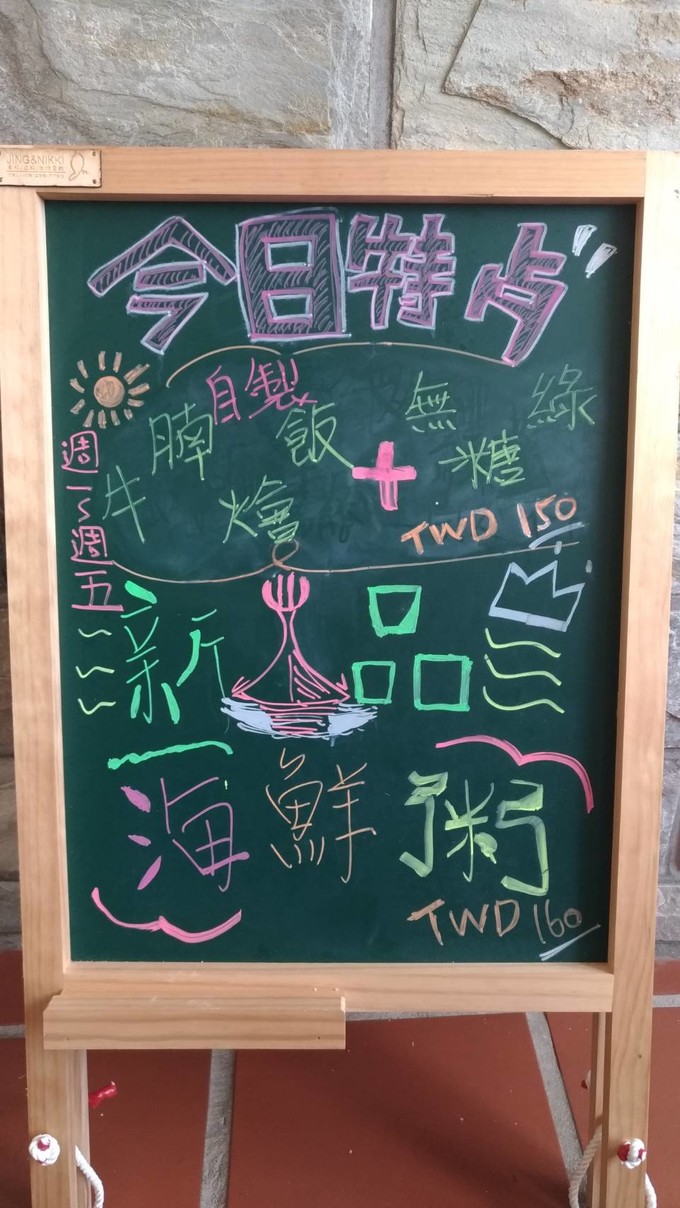 JING&NIKKI
今日特歺
自製
牛腩燴飯+無糖綠
週一~週五
TWD 150
新品
海鮮粥
TWD 160